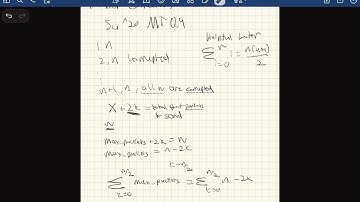 Su '20 MT Q4
Helpful later
1, n
2, n corrupted
\sum_{i=0}^{n} i = \frac{n(n+1)}{2}
n+1, n, all n are corrupted
X + 2k = total packets
to send
n
max_packets + 2k = n
max_packets = n - 2k
\sum_{k=0}^{n/2} max_packets = \sum_{k=0}^{n/2} n - 2k